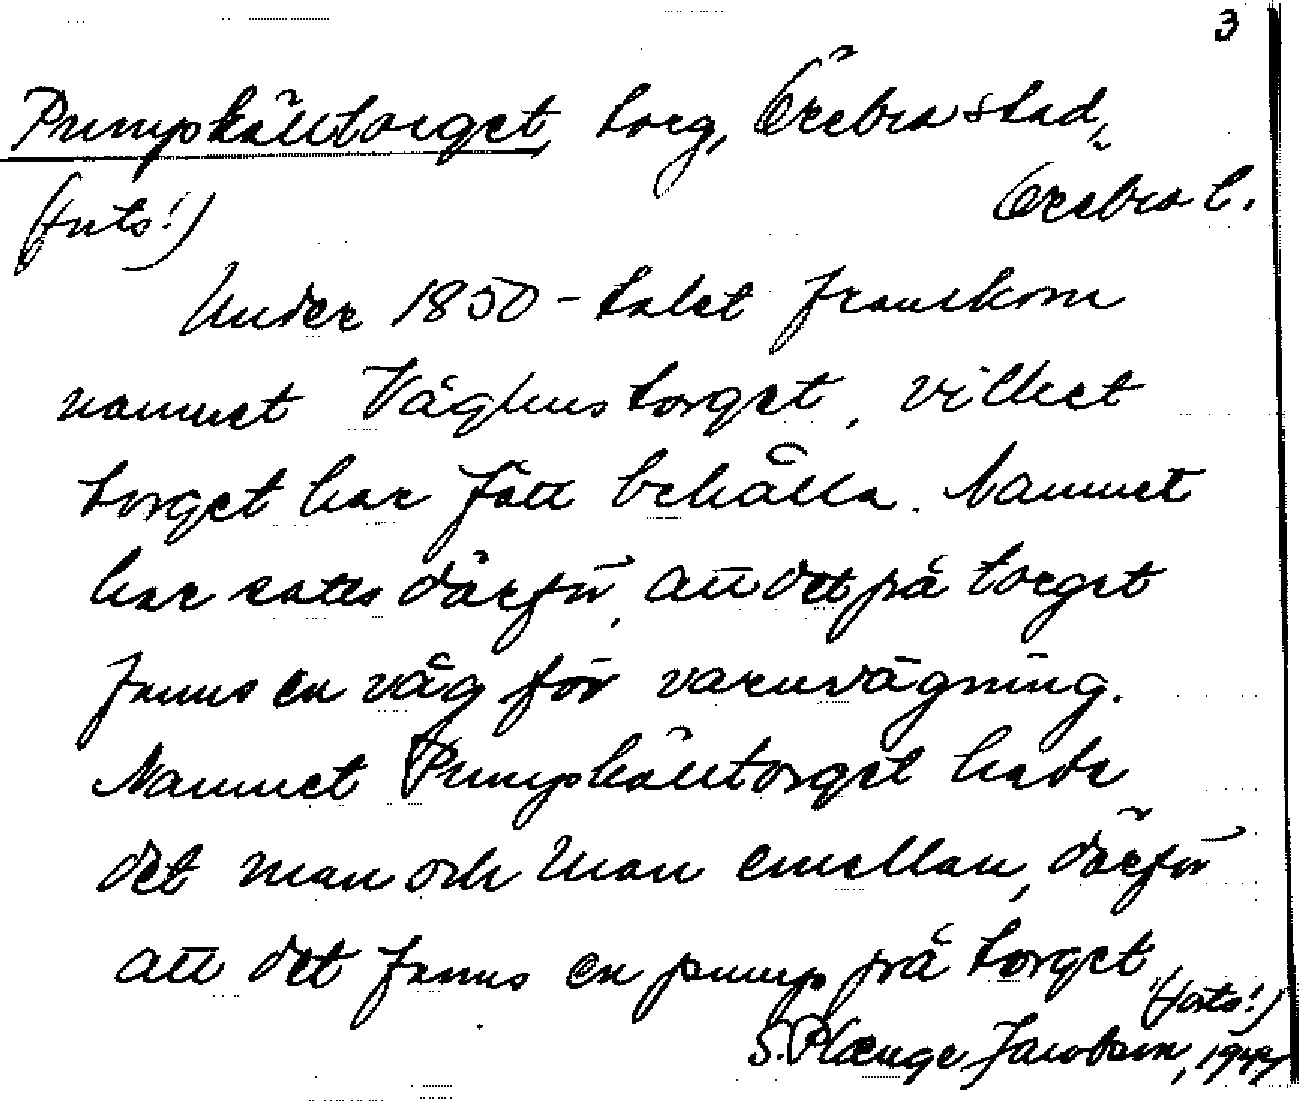 3
Pumpkälltorget, torg, Örebro stad,
(forts!) Örebro l.
Under 1850-talet framkom
namnet Våghustorget, vilket
torget har fått behålla. Namnet
har satts därför, att det på torget
fanns en våg för varuvägning.
Namnet Pumpkälltorget hade
det man och man emellan, därför
att det fanns en pump på torget
(forts!)
S. Plænge Jacobson, 1944